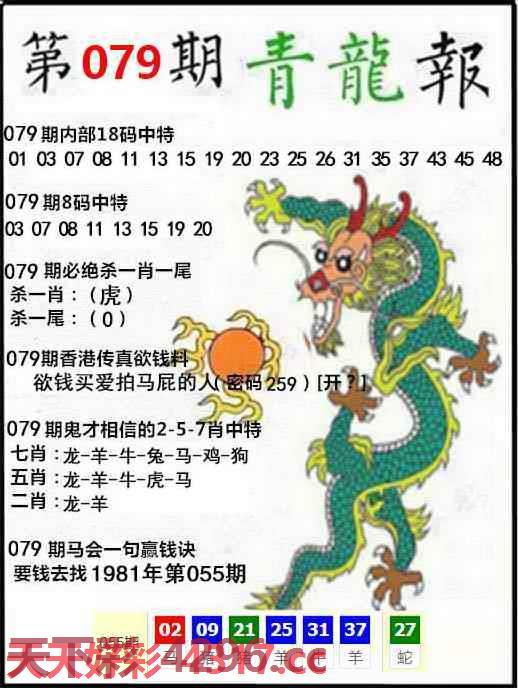 第079期 青龍報
079期内部18码中特
01 03 07 08 11 13 15 19 20 23 25 26 31 35 37 43 45 48
079期8码中特
03 07 08 11 13 15 19 20
079期必绝杀一肖一尾
杀一肖：（虎）
杀一尾：（0）
079期香港传真欲钱料
欲钱买爱拍马屁的人(密码259)[开？]
079期鬼才相信的2-5-7肖中特
七肖：龙-羊-牛-兔-马-鸡-狗
五肖：龙-羊-牛-虎-马
二肖：龙-羊
079期马会一句赢钱诀
要钱去找1981年第055期
055期 02 09 21 25 31 37 27
羊 蛇
天天好彩44296.cc